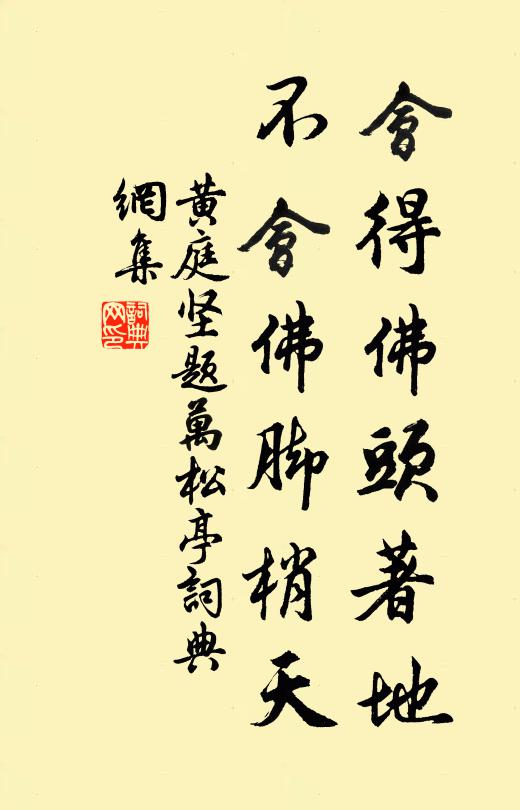 會得佛頭著地
不會佛脚梢天
黄庭坚題萬松亭詞典
網集
詞典
网印